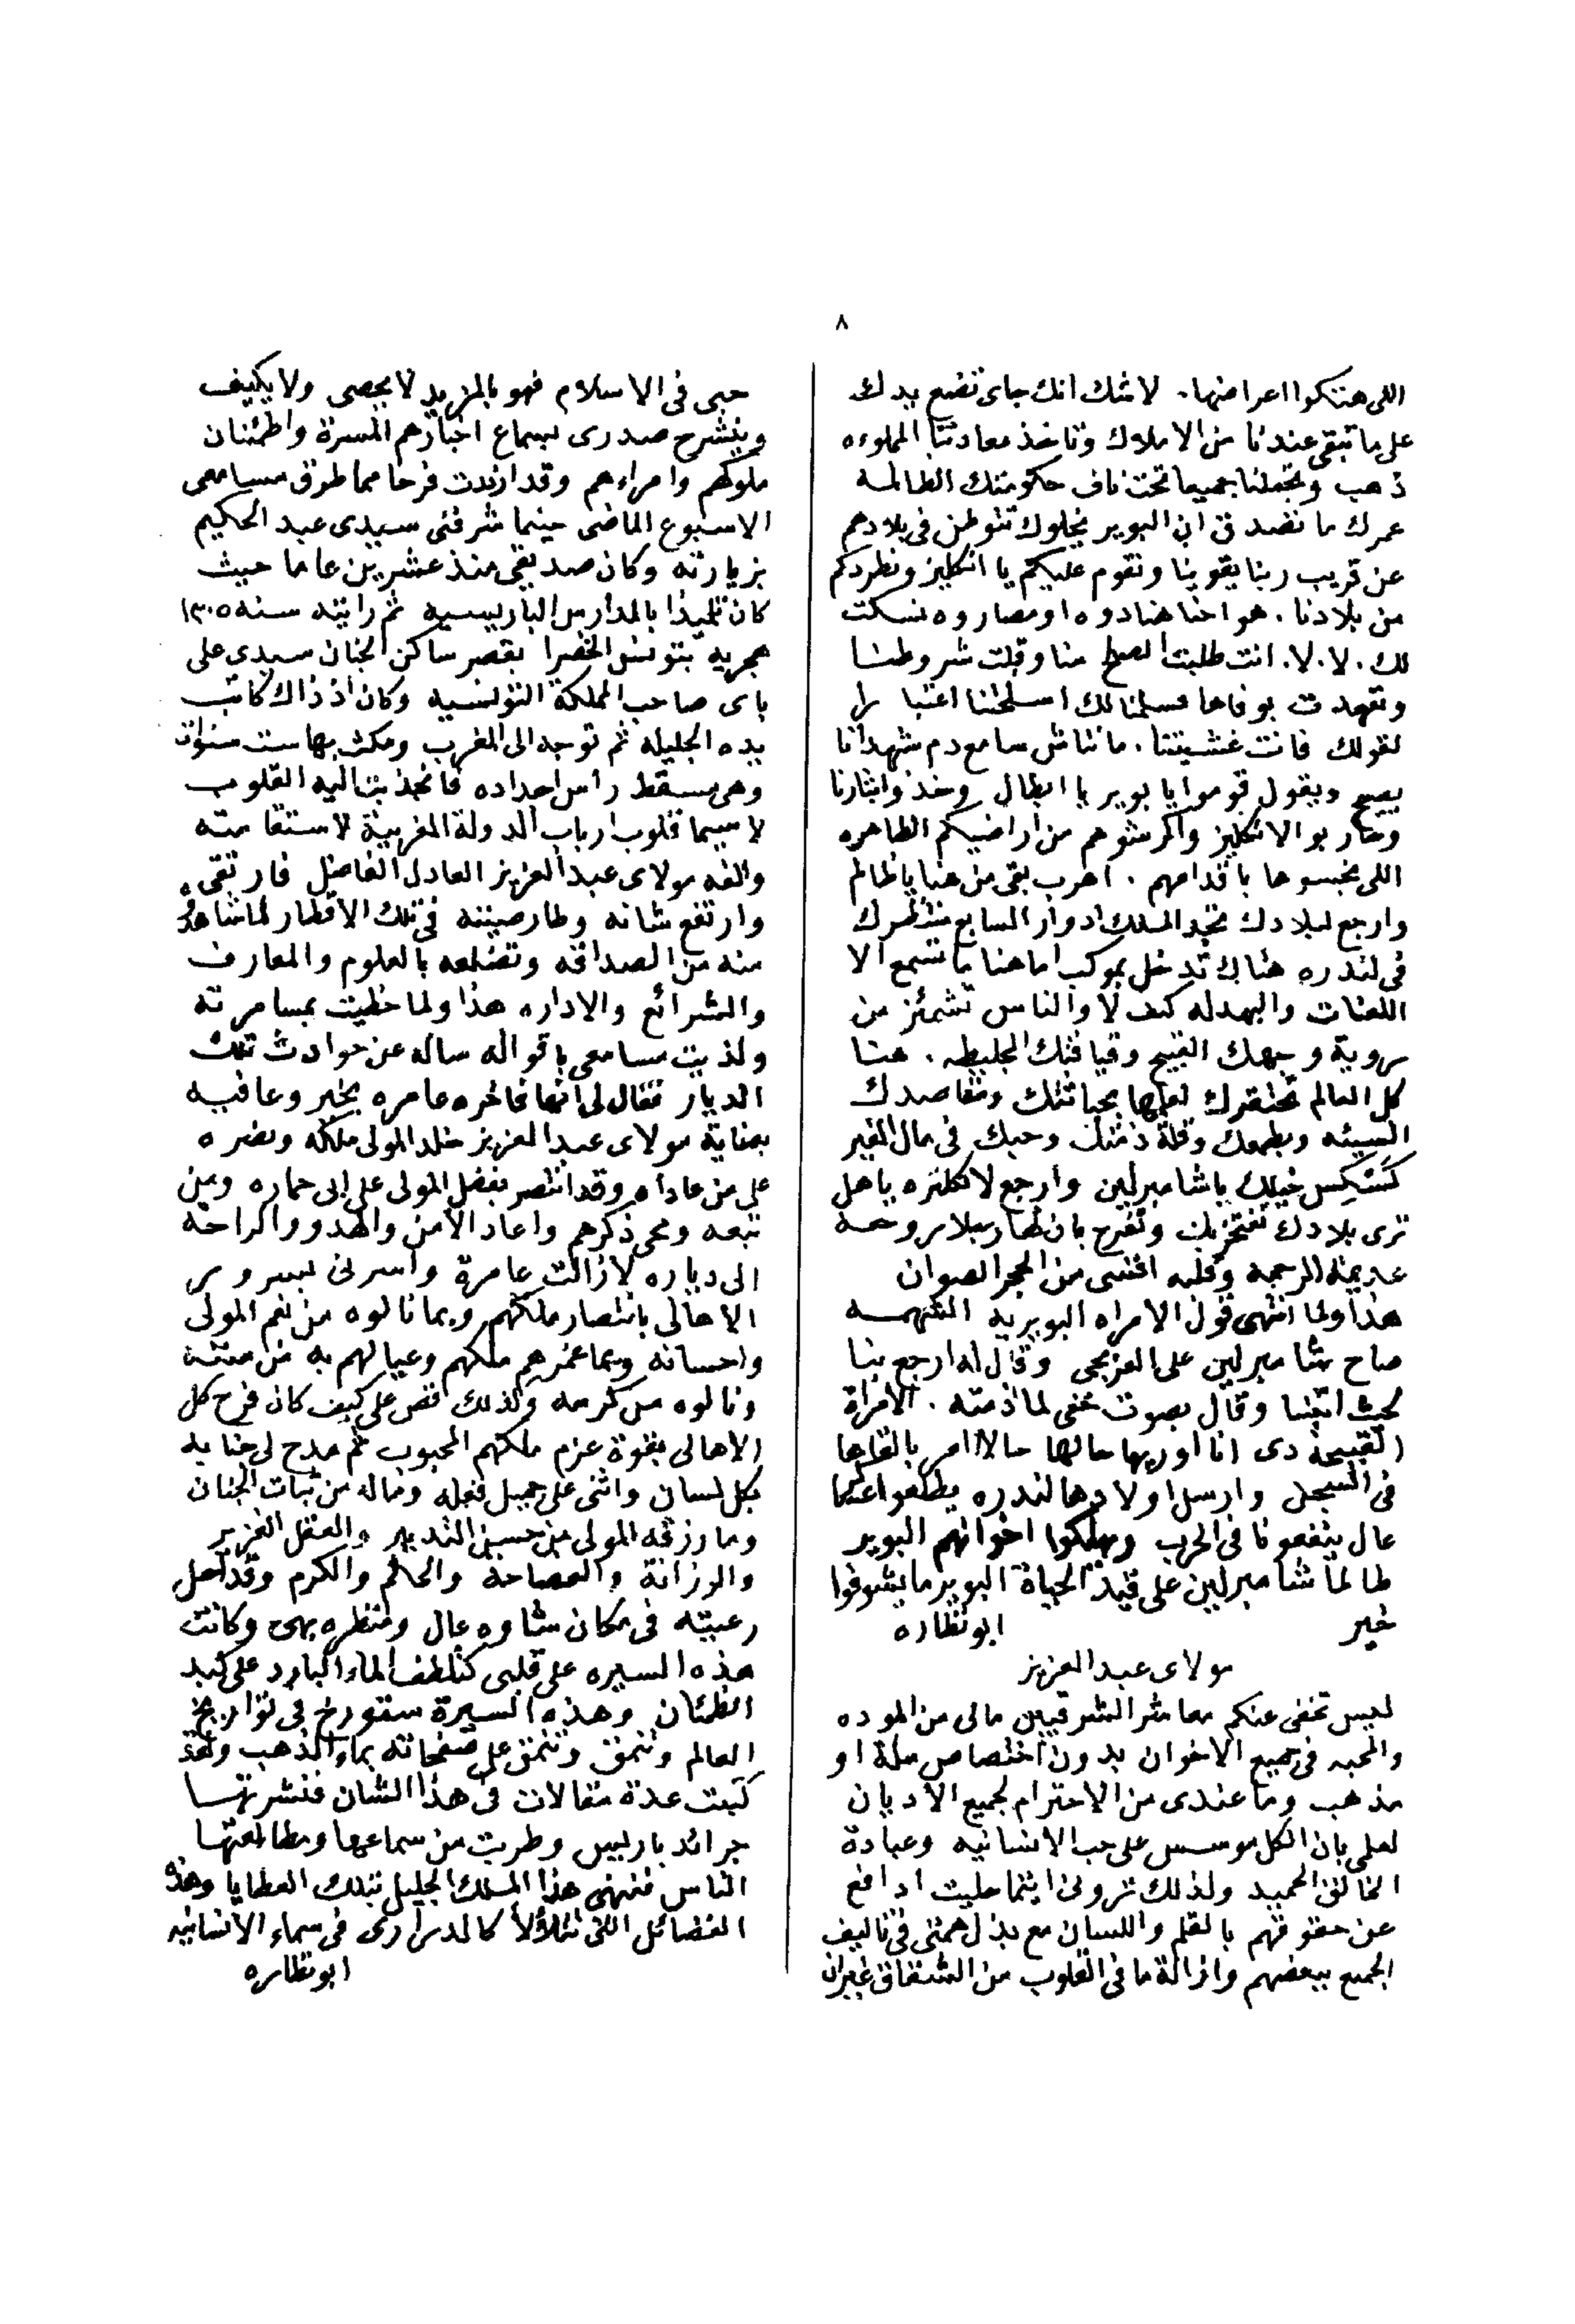 ٨
اللى هتكوا اعراضها. لا شك انك جاى تضع يدك
على ما تبقى عندنا من الاملاك وتاخذ معادننا المملوءه
ذهب وتجعلنا جميعا تحت ناف حكومتك الظالمه
عمرك ما تصدق ان البوير يخلوك تتوطن فى بلادهم
عن قريب ربنا يقوينا ونقوم عليكم يا انكليز ونطردكم
من بلادنا. هو احنا هنادوه او مصاروه نسكت
لك. لا. لا. انت طلبت الصلح منا وقبلت شروطنا
وتعهدت بوفاها فسلمنا لك اسلحتنا اعتبارا
لقولك فانت غشيتنا. مانتاش سامع دم شهدانا
يصيح ويقول قوموا يا بوير يا ابطال وخذوا بثارنا
وحاربوا الانكليز واكرشوهم من اراضيكم الطاهره
اللى نجسوها باقدامهم. اهرب بقى من هنا يا ظالم
وارجع لبلادك تجد الملك ادوار السابع منتظرك
فى لندره هناك تدخل بموكب اما هنا ما تسمع الا
اللعنات والبهدله كيف لا والناس تشمئز من
روية وجهك القبيح وقيافتك الجليطه. هنا
كل العالم تحتقرك لعلمها بخباثتك ومقاصدك
السيئه وبطمعك وقلة ذمتك وحبك فى مال الغير
كستكس خيلك يا شامبرلين وارجع لانكلتره يا هل
ترى بلادك تفتخر بك وتفرح بانسان بلا روح
عديمة الرحمه وقلبه اقسى من الحجر الصوان
هذا ولما انتهى قول الامراه البويريه الشهمه
صاح شامبرلين على العربجى وقال له ارجع بنا
لحيث اتينا وقال بصوت خفى لما ذمته. الامراة
القبيحة دى انا اوريها حالها حالا امر بالقاها
فى السجن وارسل اولادها لندره يطلعوا عساكر
عال ينفعونا فى الحرب ويهلكوا اخوانهم البوير
طالما شامبرلين على قيد الحياة البوير ما يشوفوا
خير ابو نظاره
مولاى عبد العزيز
ليس تخفى عنكم معاشر الشرقيين مالى من الموده
والمحبه فى جميع الاخوان بدون اختصاص ملة او
مذهب وما عندى من الاحترام لجميع الاديان
لعلمى بان الكل موسس على حب الانسانيه وعبادة
الخالق الحميد ولذلك ترونى اينما حليت ادافع
عن حقوقهم بالقلم واللسان مع بذل همتى فى تاليف
الجميع ببعضهم وازالة ما فى القلوب من الشقاق غير ان
حبى فى الاسلام فهو بالمزيد لا يحصى ولا يكيف
وينشرح صدرى بسماع اخبارهم المسرة واطمئنان
ملوكهم وامراءهم وقد ازيدت فرحا مما طوق مسامعى
الاسبوع الماضى حينما شرفنى سيدى عبد الحكيم
بزيارته وكان صديقى منذ عشرين عاما حيث
كان تلميذا بالمدارس الباريسيه ثم رايته سنه ١٣٠٥
هجريه بتونس الخضرا بقصر ساكن الجنان سيدى على
باى صاحب المملكة التونسيه وكان اذ ذاك كاتب
يده الجليله ثم توجه الى المغرب ومكث بها ست سنوات
وهى مسقط راس اجداده فانجذبت اليه القلوب
لا سيما قلوب ارباب الدولة المغربية لاستقامته
والفه مولاى عبد العزيز العادل الفاضل فارتقى
وارتفع شانه وطار صيته فى تلك الاقطار لما شاهدوه
منه من الصداقه وتضلعه بالعلوم والمعارف
والشرائع والاداره هذا ولما حظيت بمسامرته
ولذيت مسامعى باقواله ساله عن حوادث تلك
الديار فقال لى انها فاخره عامره بخير وعافيه
بعناية مولاى عبد العزيز خلد المولى ملكه ونصره
على من عاداه وقد انتصر بفضل المولى على ابى حماره ومن
تبعه ومحى ذكرهم واعاد الامن والهدو والراحة
الى دياره لازالت عامرة واسرنى بسرور
الاهالى بانتصار ملكهم وبما نالوه من نعم المولى
واحسانه وبما غمرهم ملكهم وعيالهم به من مننه
ونالوه من كرمه وكذلك قص على كيف كان فرح كل
الاهالى بقوة عزم ملكهم المحبوب ثم مدح لى جنابه
بكل لسان واثنى على جميل فعله وماله من ثبات الجنان
وما رزقه المولى من حسن التدبير والعقل الغزير
والرزانة والفصاحة والحلم والكرم وقد احل
رعيته فى مكان شاوه عال ومنظره بهى وكانت
هذه السيره على قلبى كلطف الماء البارد على كبد
الظمئان وهذه السيرة ستورخ فى تواريخ
العالم وتنمق على صفحاته بماء الذهب ولقد
كتبت عدة مقالات فى هذا الشان فنشرتها
جرائد باريس وطربت من سماعها ومطالعتها
الناس فنهنى هذا الملك الجليل بتلك العطايا وهذه
الفضائل التى تتلألأ كالدرارى فى سماء الانسانيه
ابو نظاره